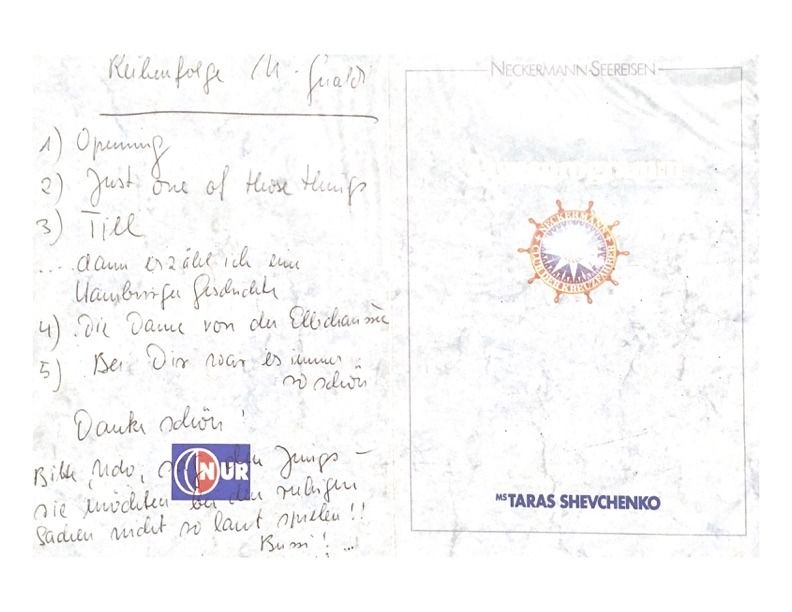 Reihenfolge M. Gualdi
1) Opening
2) Just one of those things
3) Till
.... dann erzähl ich eine
Hamburger Geschichte
4) Die Dame von der Elbchaussee
5) Bei Dir war es immer
so schön
Danke schön!
Bitte, Udo, sag den Jungs –
sie möchten bei den ruhigen
Sachen nicht so laut spielen!!
Bussi! ...
NUR
NECKERMANN-SEEREISEN
NECKERMANN
CLUB DER KREUZFAHRER
MS TARAS SHEVCHENKO